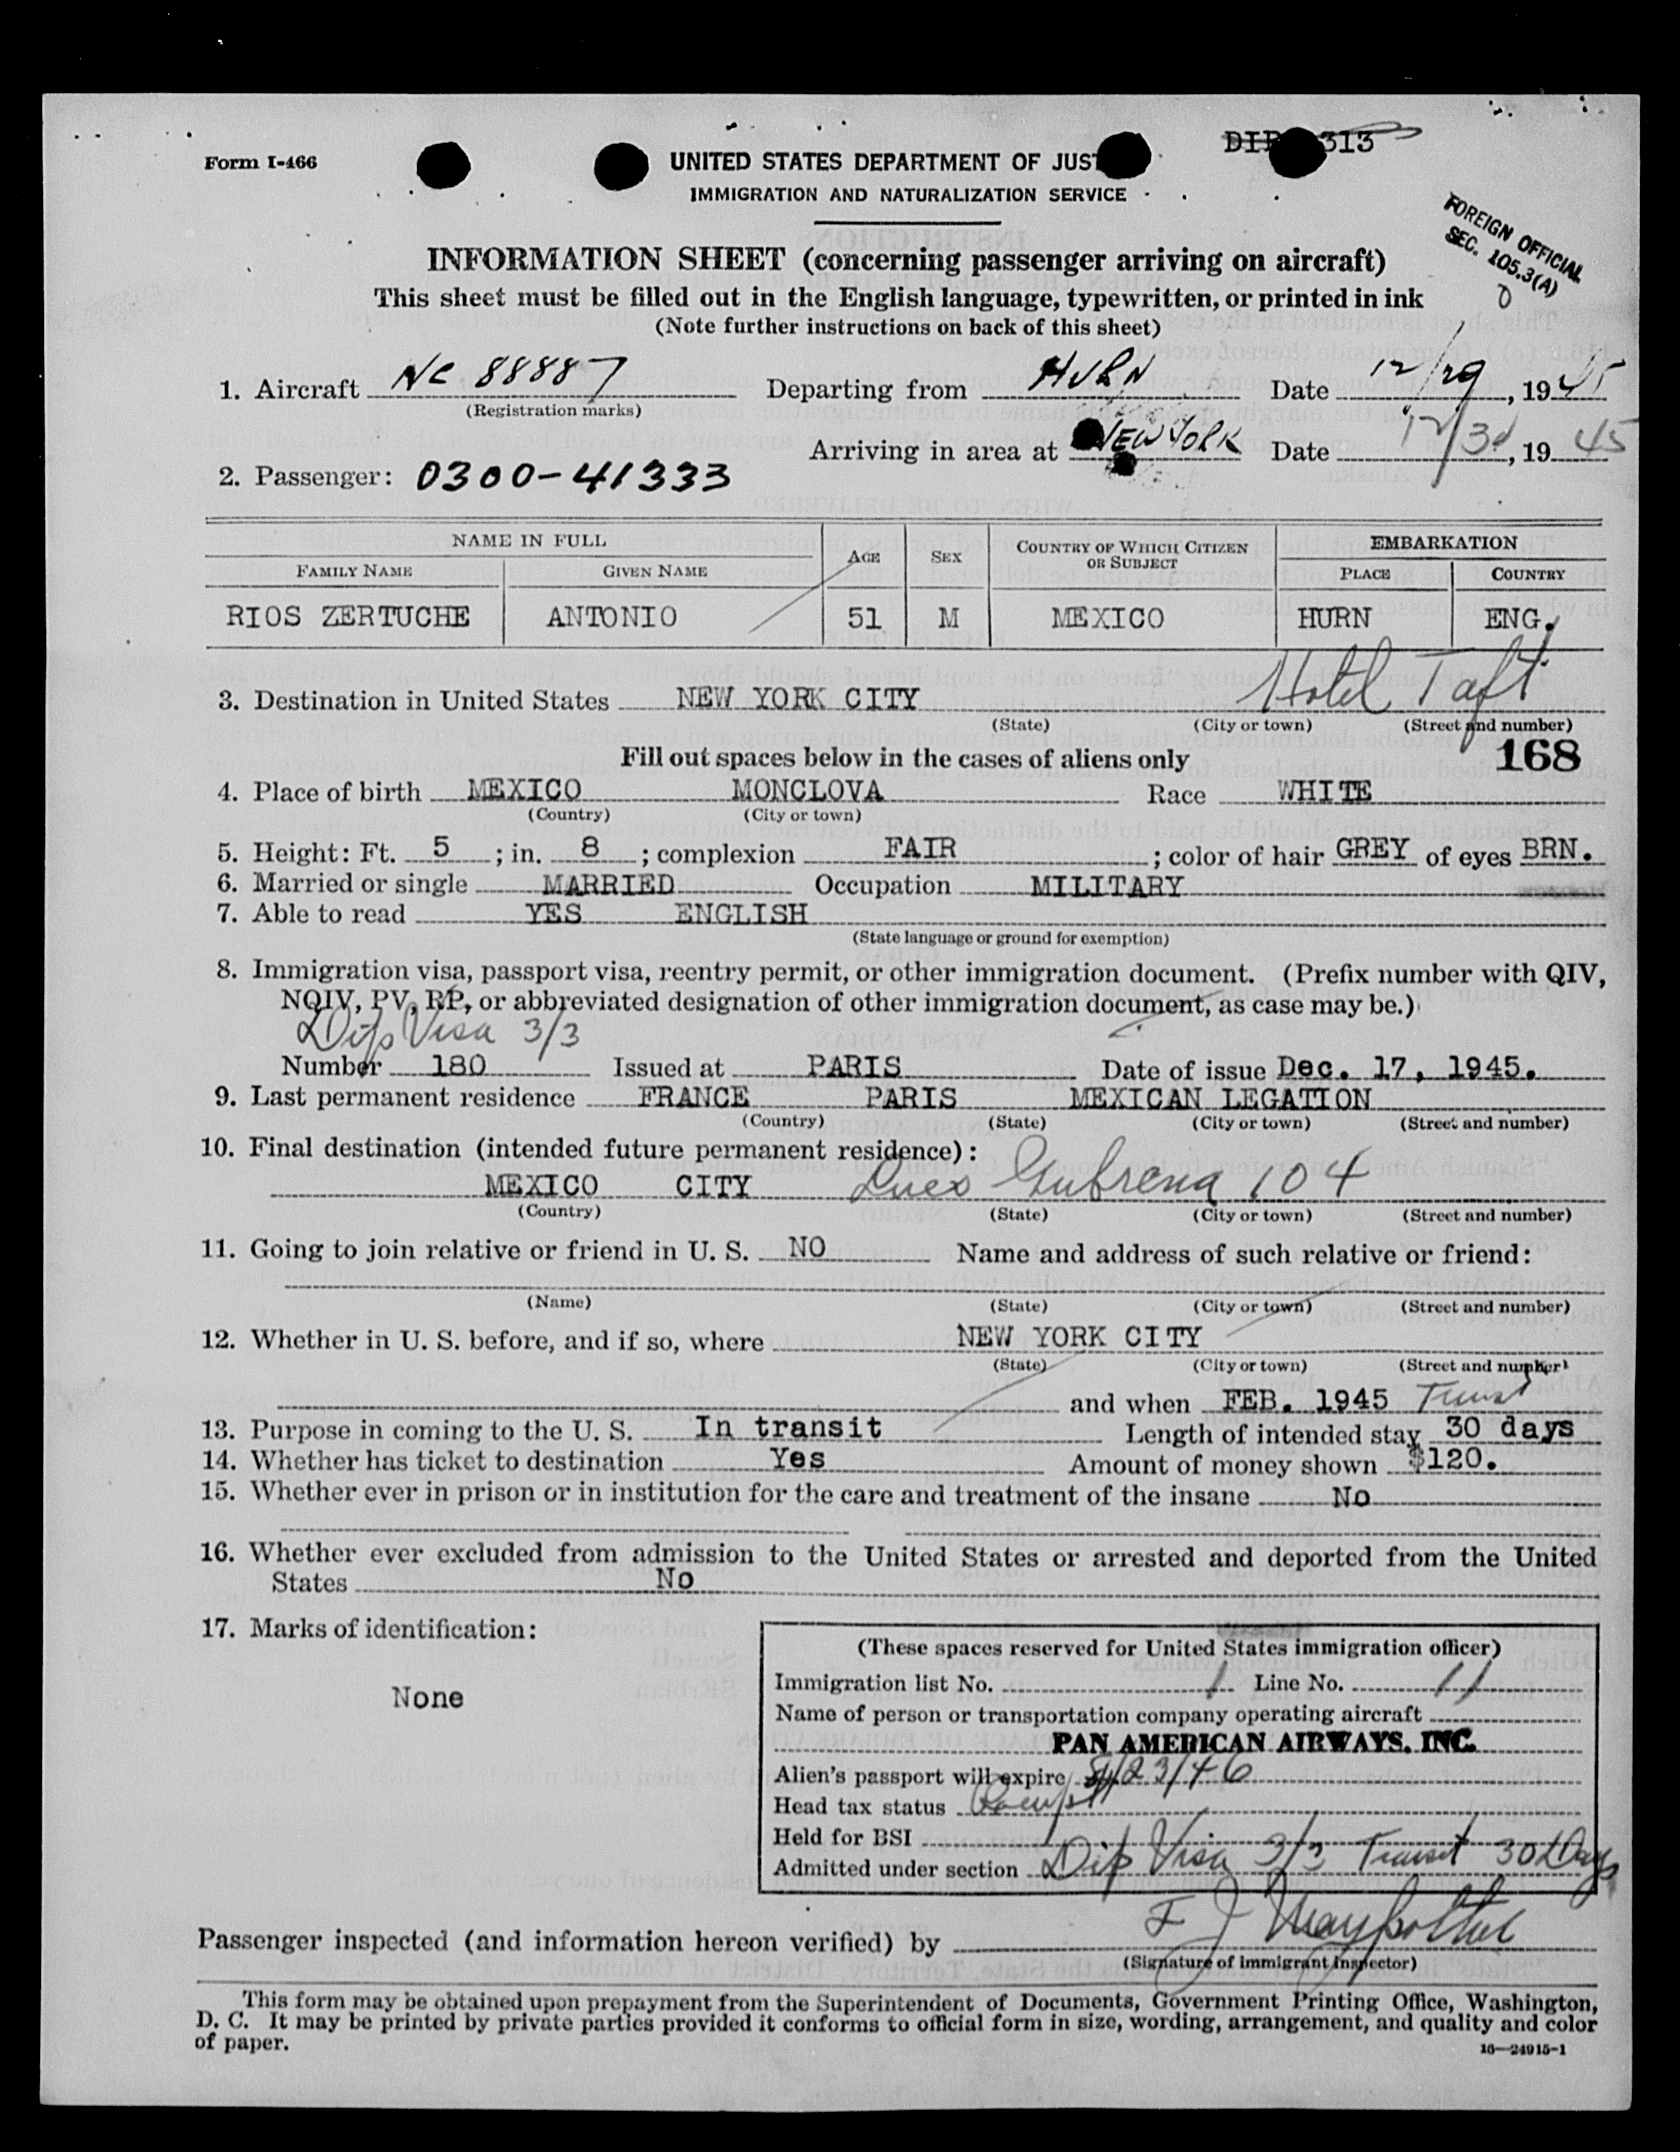 Form I-466
UNITED STATES DEPARTMENT OF JUST
IMMIGRATION AND NATURALIZATION SERVICE
DIP 313
FOREIGN OFFICIAL
SEC. 105.3(A)
INFORMATION SHEET (concerning passenger arriving on aircraft)
This sheet must be filled out in the English language, typewritten, or printed in ink
(Note further instructions on back of this sheet)
1. Aircraft NC 88887 Departing from HURN Date 12/29, 1945
(Registration marks)
Arriving in area at NEW YORK Date 12/30, 1945
2. Passenger: 0300-41333
NAME IN FULL AGE SEX COUNTRY OF WHICH CITIZEN OR SUBJECT EMBARKATION
FAMILY NAME GIVEN NAME PLACE COUNTRY
RIOS ZERTUCHE ANTONIO 51 M MEXICO HURN ENG.
3. Destination in United States NEW YORK CITY Hotel Taft
(State) (City or town) (Street and number)
Fill out spaces below in the cases of aliens only 168
4. Place of birth MEXICO MONCLOVA Race WHITE
(Country) (City or town)
5. Height: Ft. 5; in. 8; complexion FAIR; color of hair GREY of eyes BRN.
6. Married or single MARRIED Occupation MILITARY
7. Able to read YES ENGLISH
(State language or ground for exemption)
8. Immigration visa, passport visa, reentry permit, or other immigration document. (Prefix number with QIV,
NQIV, PV, RP, or abbreviated designation of other immigration document, as case may be.)
Dip Visa 3/3
Number 180 Issued at PARIS Date of issue Dec. 17, 1945.
9. Last permanent residence FRANCE PARIS MEXICAN LEGATION
(Country) (State) (City or town) (Street and number)
10. Final destination (intended future permanent residence):
MEXICO CITY 104
(Country) (State) (City or town) (Street and number)
11. Going to join relative or friend in U. S. NO Name and address of such relative or friend:
(Name) (State) (City or town) (Street and number)
12. Whether in U. S. before, and if so, where NEW YORK CITY
(State) (City or town) (Street and number)
and when FEB. 1945
13. Purpose in coming to the U. S. In transit Length of intended stay 30 days
14. Whether has ticket to destination Yes Amount of money shown $120.
15. Whether ever in prison or in institution for the care and treatment of the insane No
16. Whether ever excluded from admission to the United States or arrested and deported from the United
States No
17. Marks of identification:
None
(These spaces reserved for United States immigration officer)
Immigration list No. 1 Line No. 11
Name of person or transportation company operating aircraft
PAN AMERICAN AIRWAYS, INC.
Alien's passport will expire /23/46
Head tax status
Held for BSI
Admitted under section Dip Visa 3/3 Transit 30 Days
F J
Passenger inspected (and information hereon verified) by
(Signature of Immigrant Inspector)
This form may be obtained upon prepayment from the Superintendent of Documents, Government Printing Office, Washington,
D. C. It may be printed by private parties provided it conforms to official form in size, wording, arrangement, and quality and color
of paper.
16—24915-1